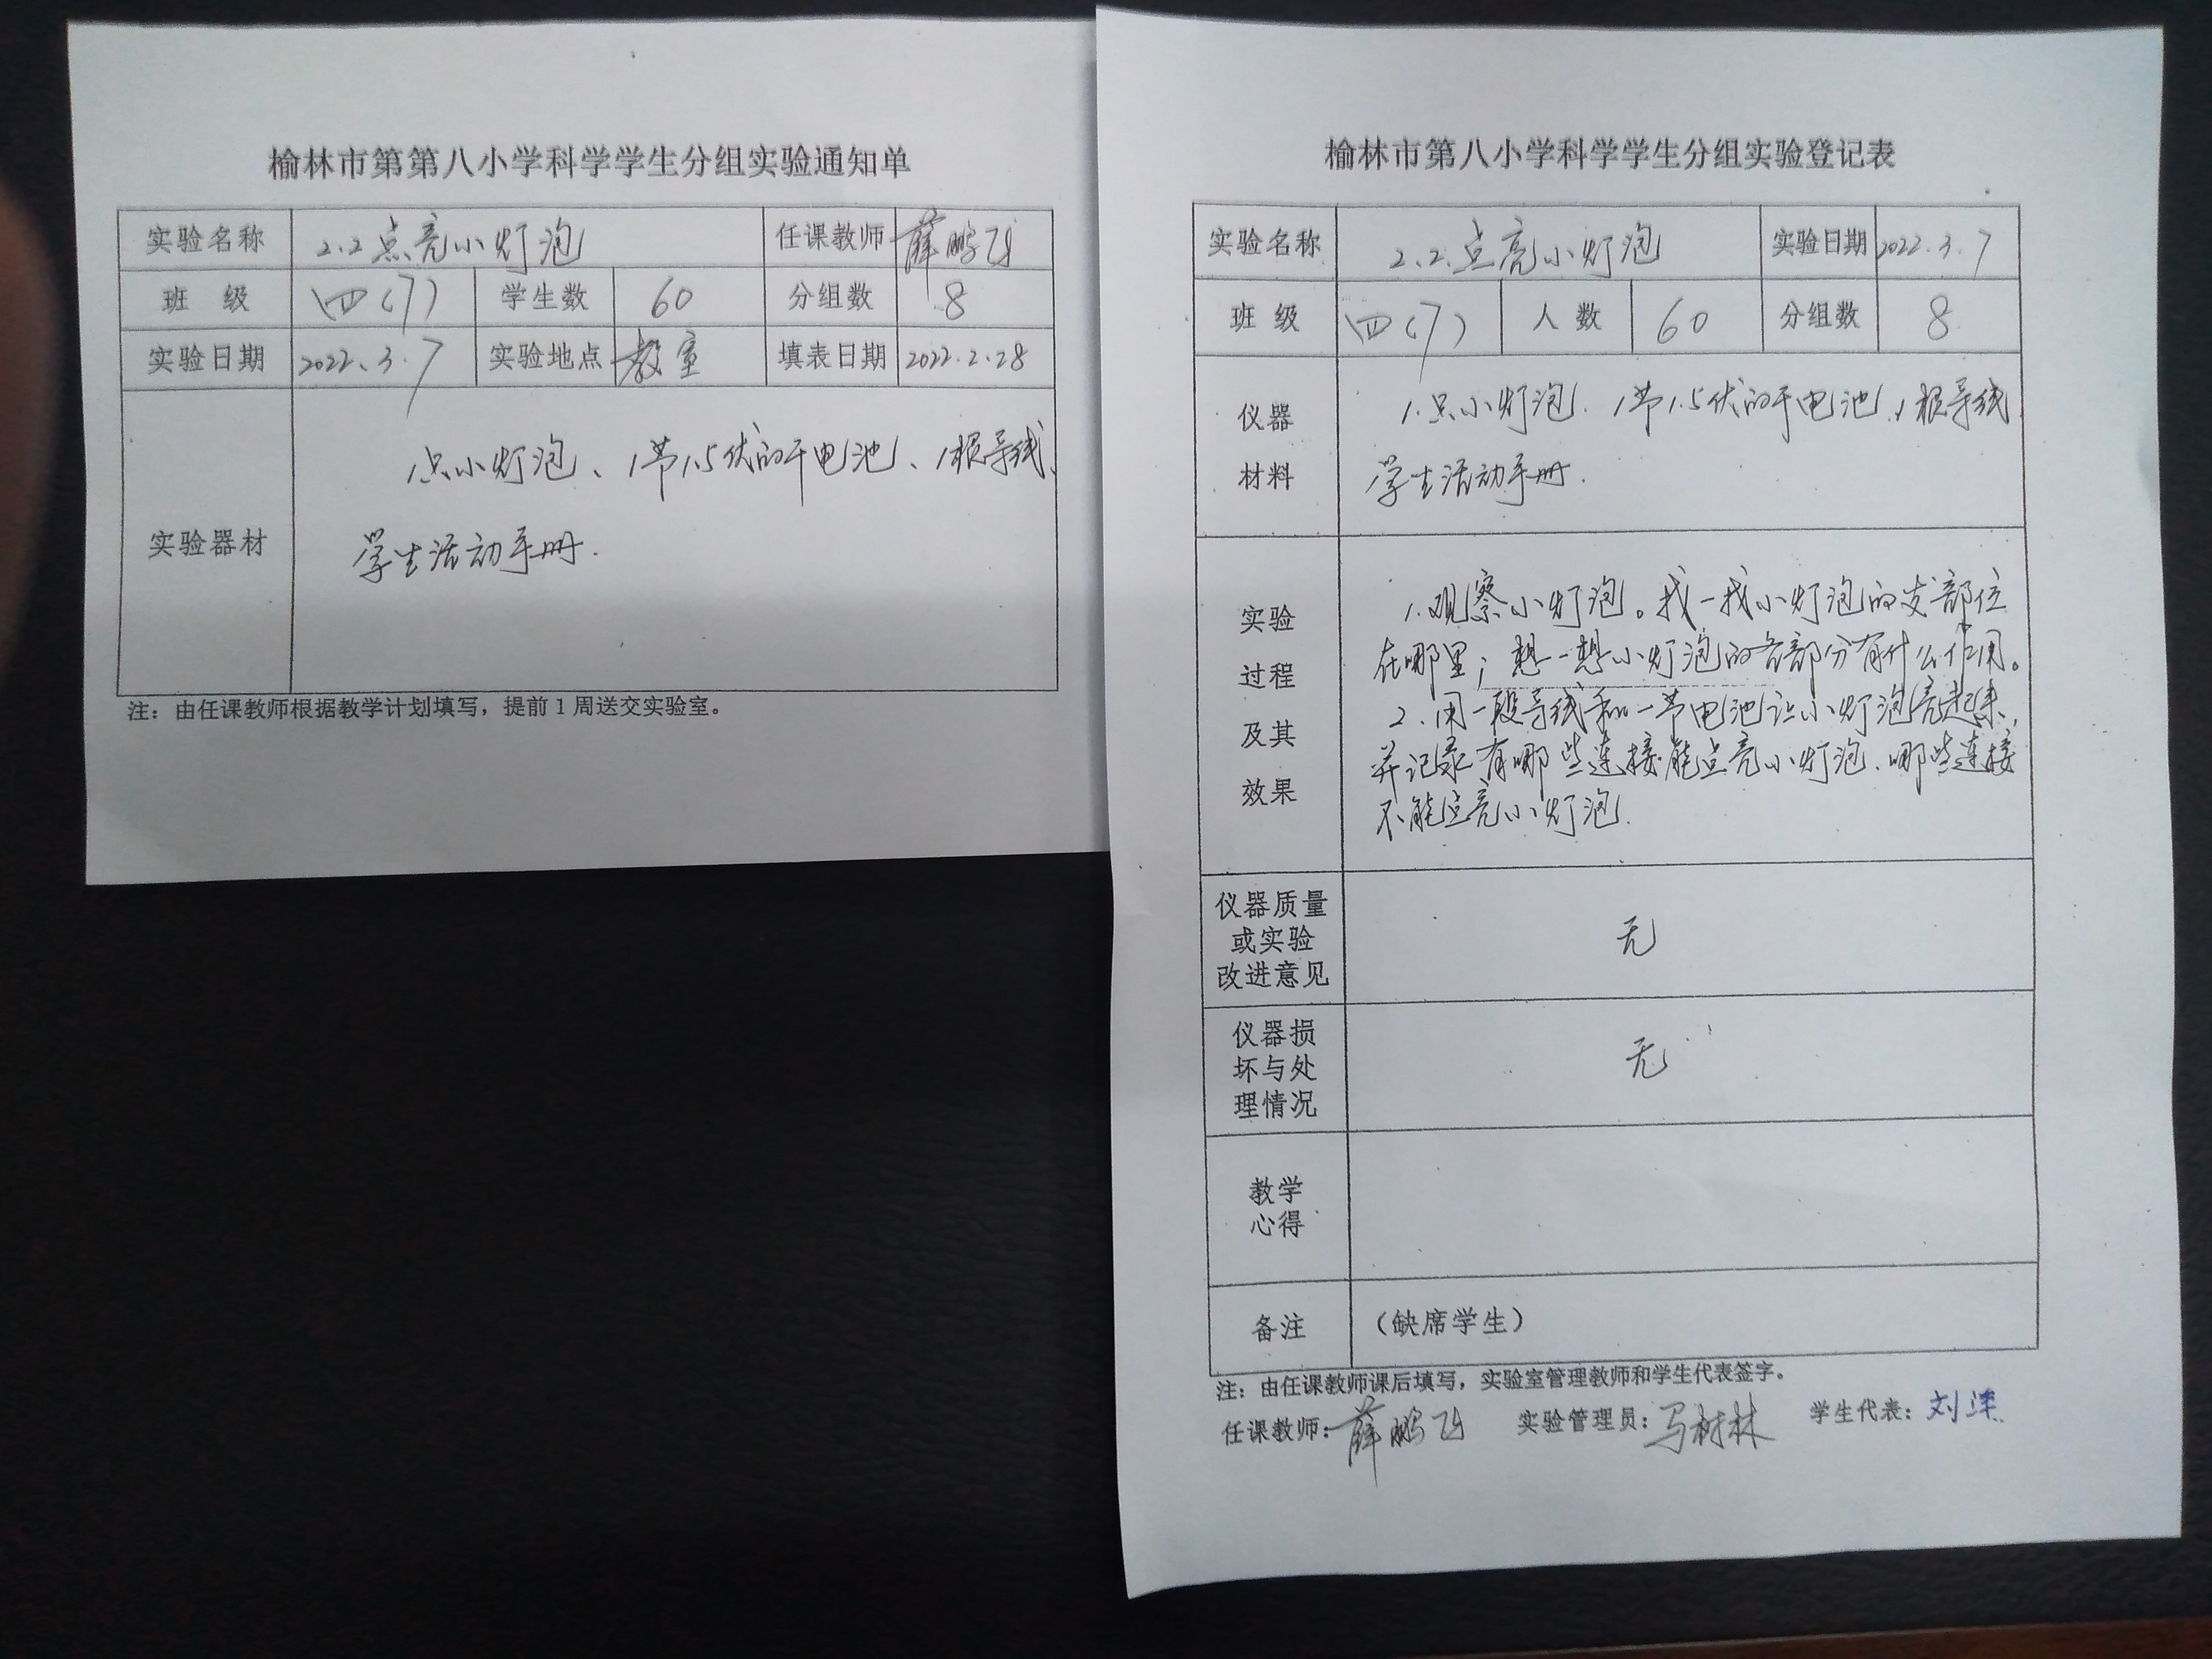 榆林市第第八小学科学学生分组实验通知单
实验名称 2.2点亮小灯泡 任课教师 薛鹏飞
班 级 四(7) 学生数 60 分组数 8
实验日期 2022.3.7 实验地点 教室 填表日期 2022.2.28
实验器材
1点小灯泡、1节1.5伏的干电池、1根导线、
学生活动手册.
注：由任课教师根据教学计划填写，提前1周送交实验室。
榆林市第八小学科学学生分组实验登记表
实验名称 2.2.点亮小灯泡 实验日期 2022.3.7
班 级 四(7) 人 数 60 分组数 8
仪器
材料
1.点小灯泡. 1节1.5伏的干电池、1根导线
学生活动手册.
实验
过程
及其
效果
1.观察小灯泡。找一找小灯泡的发部位
在哪里；想一想小灯泡的各部分有什么作用。
2.用一段导线和一节电池让小灯泡亮起来，
并记录有哪些连接能点亮小灯泡、哪些连接
不能点亮小灯泡.
仪器质量
或实验
改进意见
无
仪器损
坏与处
理情况
无
教学
心得
备注 （缺席学生）
注：由任课教师课后填写，实验室管理教师和学生代表签字。
任课教师：薛鹏飞 实验管理员：马树林 学生代表：刘洋